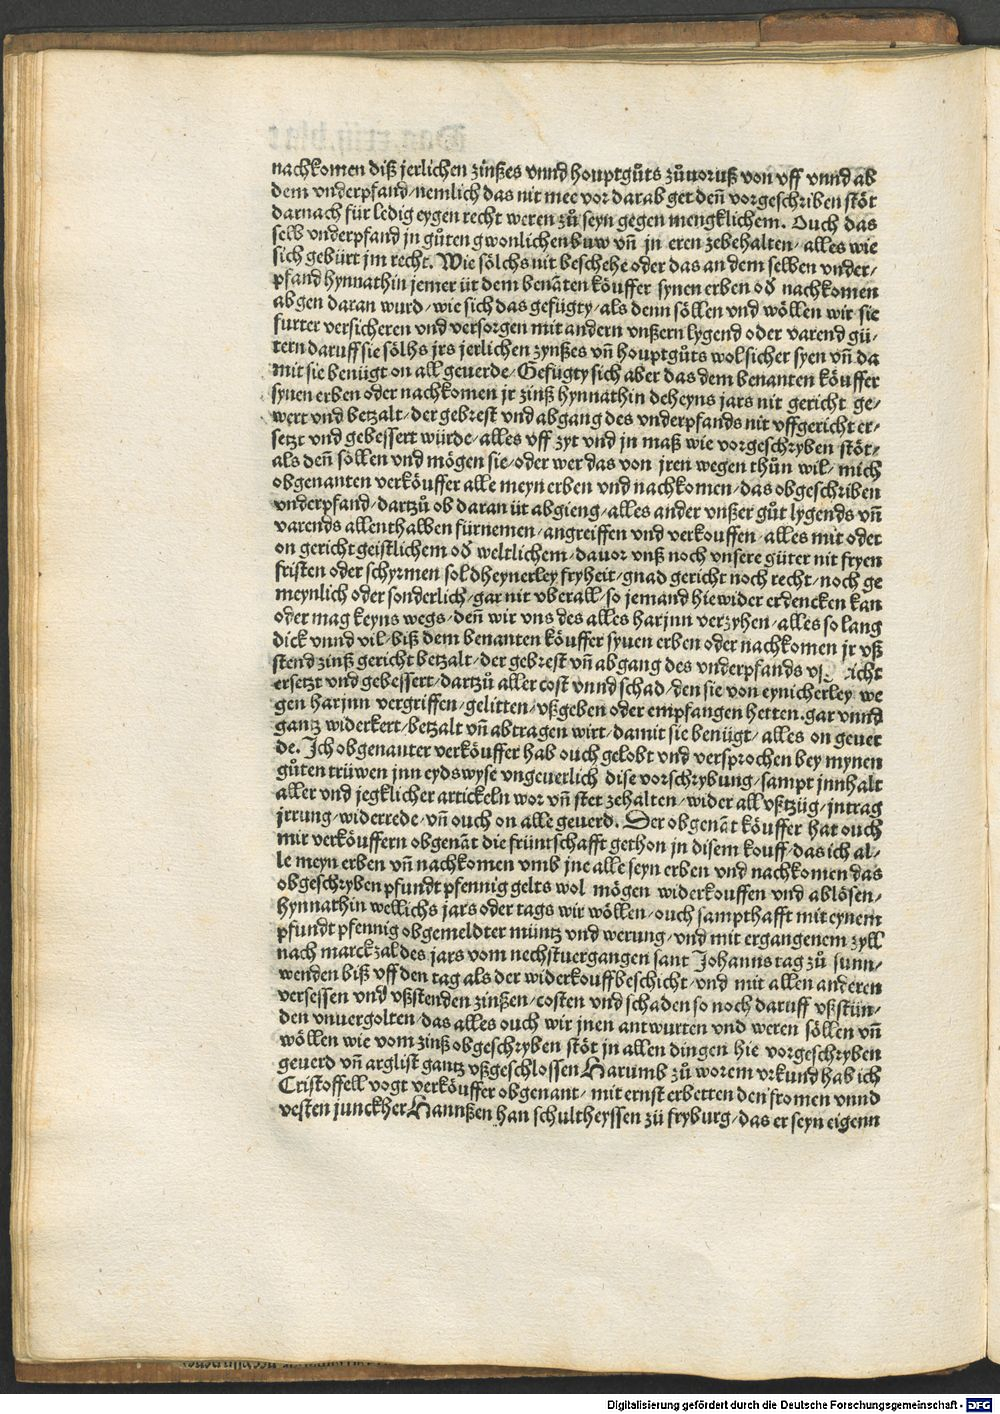 nachkomen diß jerlichen zinßes vnnd houptgůts zůuoruß von vff vnnd ab
dem vnderpfand/nemlich das nit mee vor darab get deñ vorgeschriben stöt
darnach für ledig eygen recht weren zů seyn gegen mengklichem. Ouch das
selb vnderpfand jn gůten gwonlichen buw vñ jn eren zebehalten/alles wie
sich gebürt jm recht. Wie sölchs nit beschehe oder das an dem selben vnder/
pfand hynnathin jemer üt dem benāten köuffer synen erben oď nachkomen
abgen daran wurd/wie sich das gefügty/als denn söllen vnd wöllen wir sie
furter versicheren vnd versorgen mit andern vnßern lygend oder varend gü/
tern daruff sie sölhs jrs jerlichen zynßes vñ houptgůts wol sicher syen vñ da
mit sie benügt on all geuerde/Gefugty sich aber das dem benanten köuffer
synen erben oder nachkomen jr zinß hynnathin deheyns jars nit gericht ge/
wert vnd betzalt/der gebrest vnd abgang des vnderpfands nit vffgericht er/
setzt vnd gebessert würde/alles vff zyt vnd jn maß wie vorgeschryben stöt/
als deñ söllen vnd mögen sie/oder wer das von jren wegen thůn wil/mich
obgenanten verköuffer alle meyn erben vnd nachkomen/das obgeschriben
vnderpfand/dartzů ob daran üt abgieng/alles ander vnßer gůt lygends vñ
varends allenthalben fürnemen/angreiffen vnd verkouffen/alles mit oder
on gericht geistlichem oď weltlichem/dauor vnß noch vnsere güter nit fryen
fristen oder schyrmen sol dheynerley fryheit/gnad gericht noch recht/noch ge
meynlich oder sonderlich/gar nit vberall/so jemand hiewider erdencken kan
oder mag keyns wegs/deñ wir vns des alles harjnn verzyhen/alles so lang
dick vnnd vil/biß dem benanten köuffer synen erben oder nachkomen jr vß
stend zinß gericht betzalt/der gebrest vñ abgang des vnderpfands
ersetzt vnd gebessert/dartzů aller cost vnnd schad/den sie von eynicherley we
gen harjnn vergriffen/gelitten/vßgeben oder empfangen hetten.gar vnnd
gantz widerkert/betzalt vñ abtragen wirt/damit sie benügt/alles on geuer
de. Ich obgenanter verköuffer hab ouch gelobt vnd versprochen bey mynen
gůten trüwen jnn eydswyse vngeuerlich dise vorschrybung/sampt jnnhalt
aller vnd jegklicher artickeln wor vñ stet zehalten/wider all vßtzüg/jntrag
jrrung/widerrede/vñ ouch on alle geuerd. Der obgenāt köuffer hat ouch
mir verköuffern obgenāt die früntschafft gethon jn disem kouff/das ich al/
le meyn erben vñ nachkomen vmb jne alle seyn erben vnd nachkomen das
obgeschryben pfundt pfennig gelts wol mögen widerkouffen vnd ablösen/
hynnathin wellichs jars oder tags wir wöllen/ouch sampthafft mit eynem
pfundt pfennig obgemeldter müntz vnd werung/vnd mit ergangenem zyll
nach marckzal des jars vom nechstuergangen sant Johanns tag zů sunn/
wenden biß vff den tag als der widerkouff beschicht/vnd mit allen anderen
versessen vnd vßstenden zinßen/costen vnd schaden so noch daruff vßstün/
den vnuergolten/das alles ouch wir jnen antwurten vnd weren söllen vñ
wöllen wie vom zinß obgeschryben stöt jn allen dingen hie vorgeschryben
geuerd vñ arglist gantz vßgeschlossen Harumb zů worem vrkund hab ich
Cristoffell vogt verköuffer obgenant/mit ernst erbetten den fromen vnnd
vesten junckher Hannßen han schultheyssen zü fryburg/das er seyn eigenn
Digitalisierung gefördert durch die Deutsche Forschungsgemeinschaft - DFG